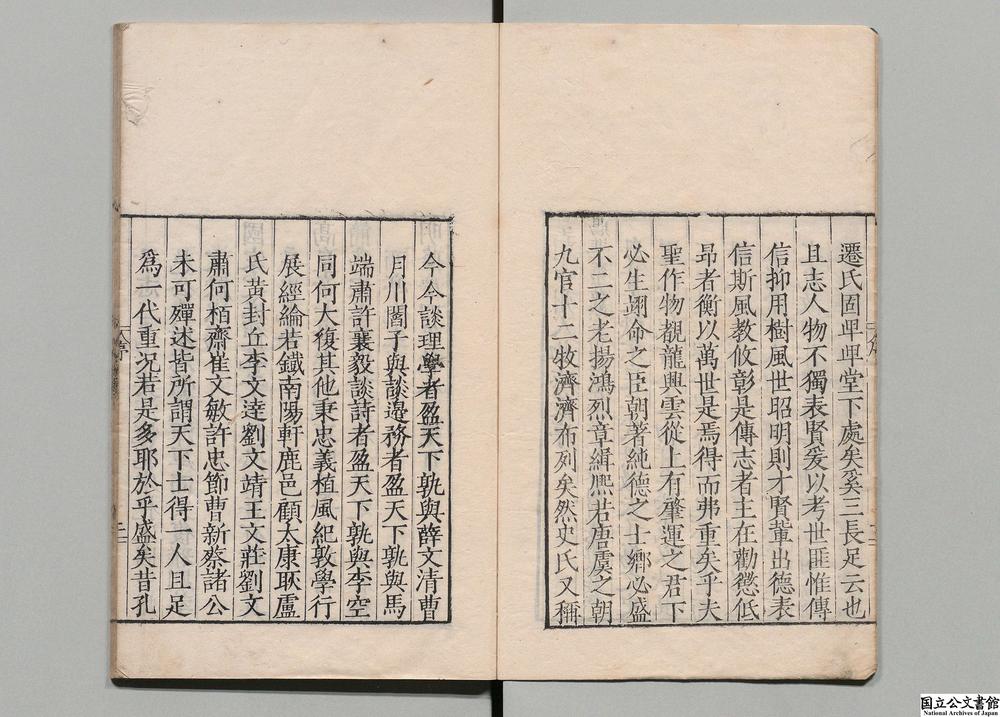 遷氏固卑卑堂下處矣奚三長足云也
且志人物不獨表賢爰以考世匪惟傳
信抑用樹風世昭明則才賢輩出德表
信斯風教攸彰是傳志者主在勸懲低
昂者衡以萬世是焉得而弗重矣乎夫
聖作物覩龍興雲從上有肇運之君下
必生翊命之臣朝著純德之士鄉必盛
不二之老揚鴻烈章緝熙若唐虞之朝
九官十二牧濟濟布列矣然史氏又稱
今今談理學者盈天下孰與薛文清曹
月川閻子與談邊務者盈天下孰與馬
端肅許襄毅談詩者盈天下孰與李空
同何大復其他秉忠義植風紀敦學行
展經綸若鐵南陽軒鹿邑顧太康耿盧
氏黃封丘李文達劉文靖王文莊劉文
肅何栢齋崔文敏許忠節曹新蔡諸公
未可殫述皆所謂天下士得一人且足
爲一代重況若是多耶於乎盛矣昔孔
国立公文書館
National Archives of Japan